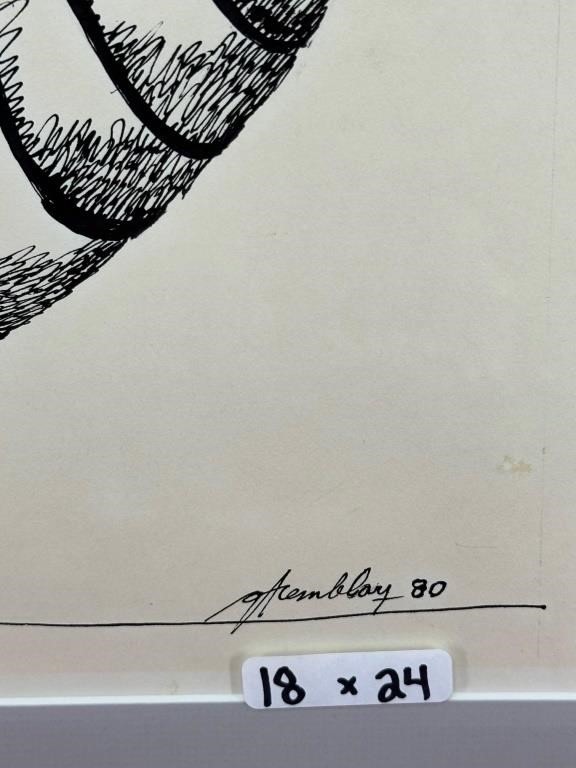 gTremblay 80
18 x 24